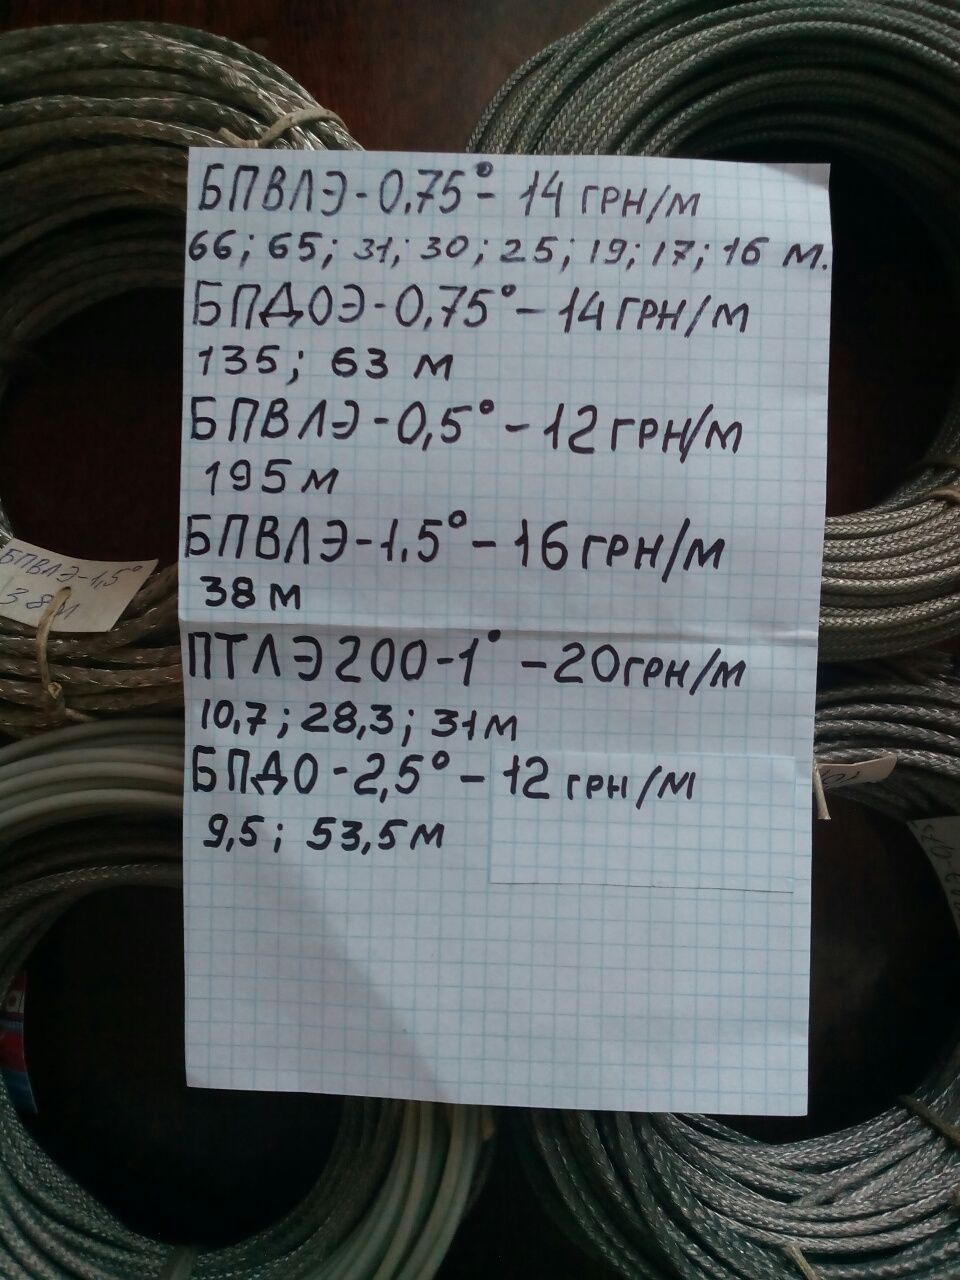 БПВЛЭ-0,75°- 14 ГРН/М
66; 65; 31; 30; 25; 19; 17; 16 М.
БПДОЭ-0,75° - 14 ГРН/М
135; 63 М
БПВЛЭ-0,5° - 12 ГРН/М
195 М
БПВЛЭ-1.5° - 16 ГРН/М
38 М
ПТЛЭ 200-1° - 20 ГРН/М
10,7; 28,3; 31 М
БПДО - 2,5° - 12 ГРН/М
9,5; 53,5 М
БПВЛЭ-1,5°
38 М